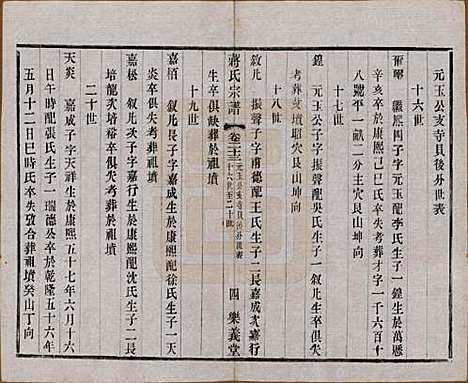 元玉公支寺貝後外世表
十六世
繼經四子字元玉配李氏生子一鍠生於萬厯
辛亥卒於康熙己巳氏卒失考葬才字一千六百十
八號平一畝二分主穴艮山坤向
十七世
鍠 元玉公子字振聲配吳氏生子一叙凡生卒俱失
考葬艾墳昭穴艮山坤向
十八世
敘凡 振聲子字甫德配王氏生子二長嘉成次嘉行
生卒俱缺葬於祖墳
十九世
蔣氏宗譜
卷二十三
十六世至二十世
四 樂義堂
嘉栢 叙凡長子字嘉成生於康熙配徐氏生子一天
炎卒俱失考葬於祖墳
嘉松 叙凡次子字嘉行生於康熙配沈氏生子二長
培龍次培裕卒俱失考葬於祖墳
二十世
天炎 嘉成子字天祥生於康熙五十七年六月十六
日午時配張氏生子一瑞德公卒於乾隆五十六年
五月十二日巳時氏卒失攷合葬祖墳癸山丁向